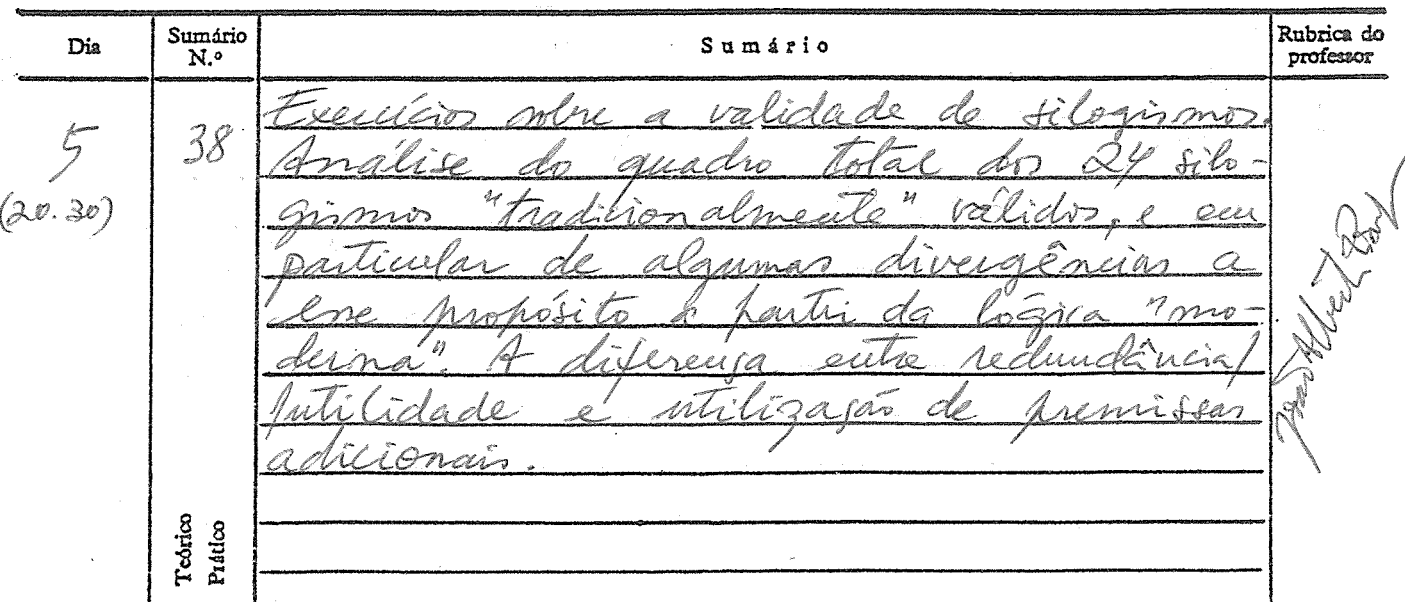 Dia
Sumário N.º
Sumário
Rubrica do professor
5
(20.30)
38
Exercícios sobre a validade de silogismos.
Análise do quadro total dos 24 silo-
gismos "tradicionalmente" válidos, e em
particular de algumas divergências a
esse propósito a partir da lógica "mo-
derna". A diferença entre redundância/
futilidade e utilização de premissas
adicionais.
Teórico
Prático